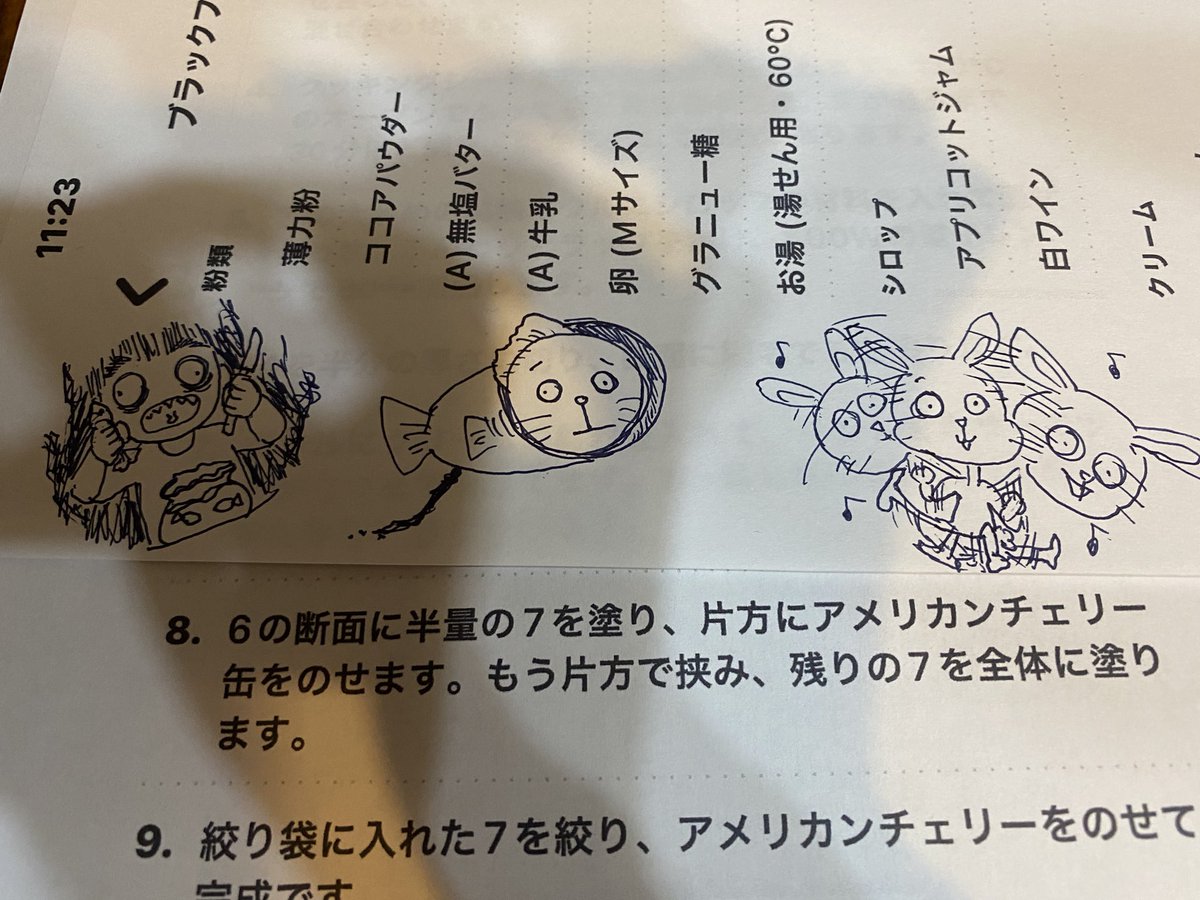 11:23
ブラックフ
粉類
薄力粉
ココアパウダー
(A) 無塩バター
(A) 牛乳
卵 (Mサイズ)
グラニュー糖
お湯 (湯せん用・60℃)
シロップ
アプリコットジャム
白ワイン
クリーム
8. 6の断面に半量の7を塗り、片方にアメリカンチェリー
缶をのせます。もう片方で挟み、残りの7を全体に塗り
ます。
9. 絞り袋に入れた7を絞り、アメリカンチェリーをのせて
完成です